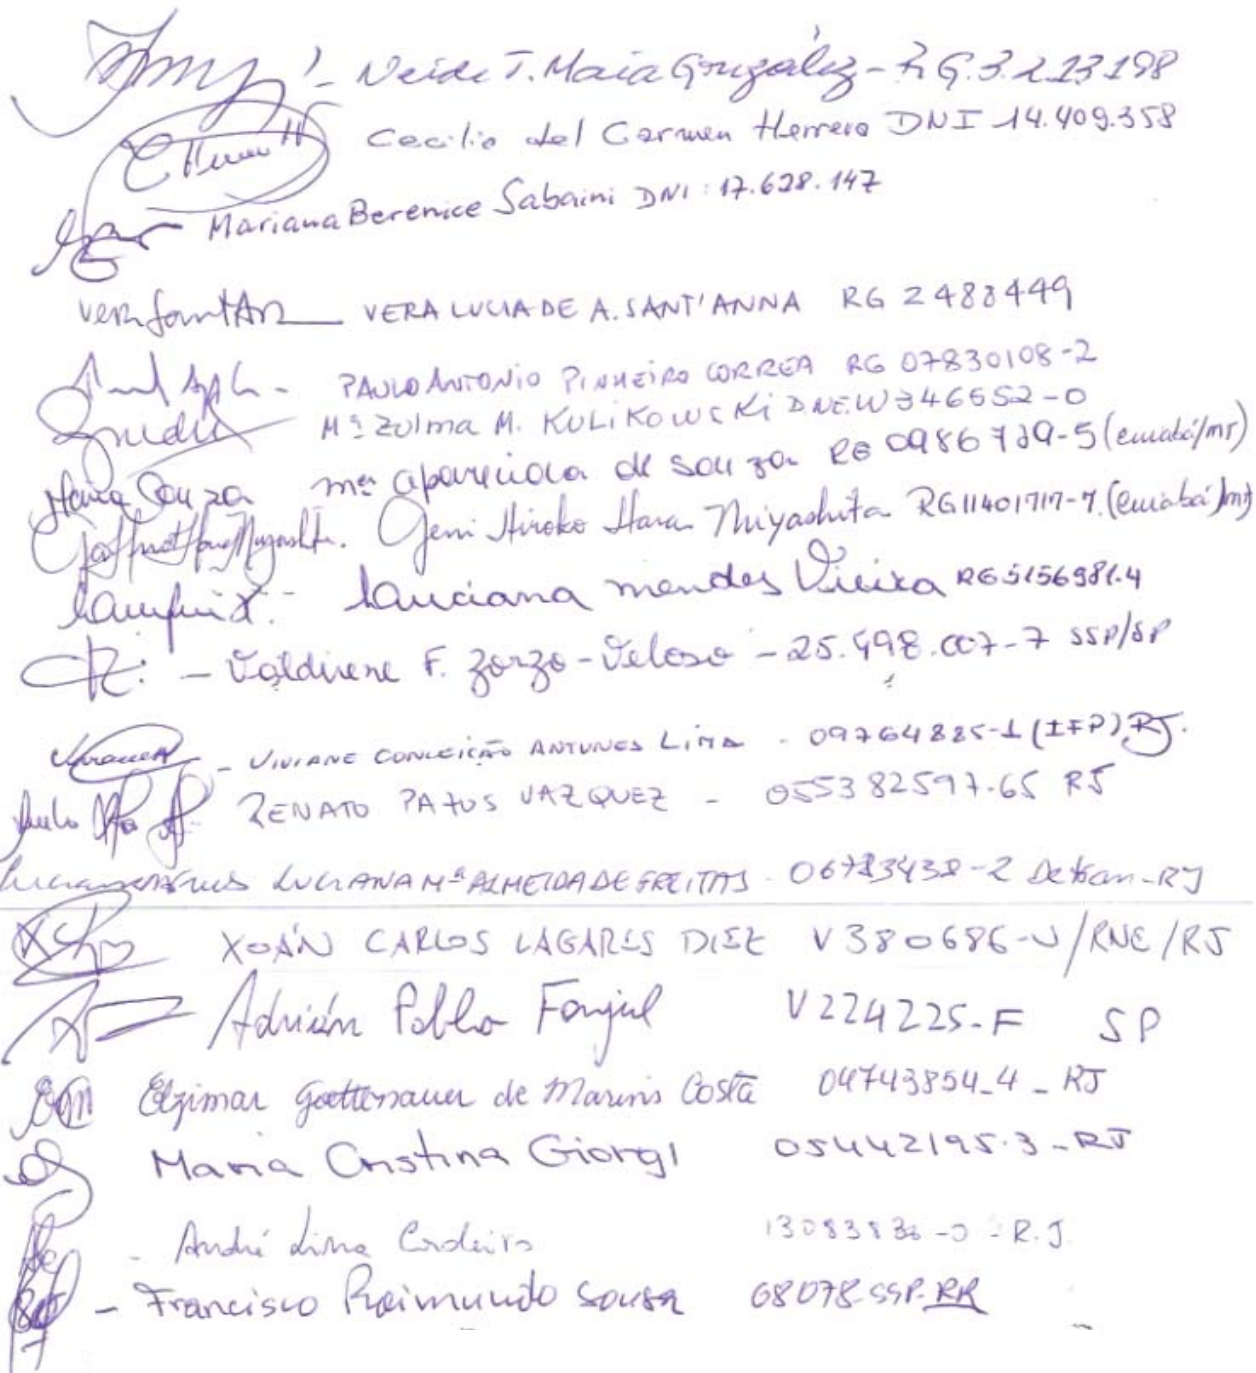 Neide T. Maia González - RG. 3.213198
Cecilio del Carmen Herrera DNI 14.409.358
Mariana Berenice Sabaini DNI: 17.628.147
VERA LUCIA DE A. SANT'ANNA RG 2488449
PAULO ANTONIO PINHEIRO CORREA RG 07830108-2
Mª Zulma M. KULIKOWSKI DNE.W346552-0
Maria Souza mª aparecida de souza RG (cuiabá/mt)
Geni Hiroko Hara Miyashita RG 11401717-7 (Cuiabá/mt)
Lauciana mendes Vieira RG 5156981.4
- Valdirene F. Zorzo-Veloso - 25.498.007-7 SSP/SP
- VIVIANE CONCEIÇÃO ANTUNES LIMA - 09764885-1 (IFP) RJ.
RENATO PAZOS VAZQUEZ - 055382597.65 RJ
LUCIANA Mª ALMEIDA DE FREITAS - 06783438-2 Detran-RJ
XOÁN CARLOS LAGARES DIEZ V380686-J/RNE/RJ
Adrián Pablo Fanjul V224225-F SP
Elzimar Goettenauer de Marins Costa 04743854-4 - RJ
Maria Cristina Giorgi 05442195.3 - RJ
- André Lima Cordeiro - R.J.
- Francisco Raimundo Sousa 68078-SSP-RR